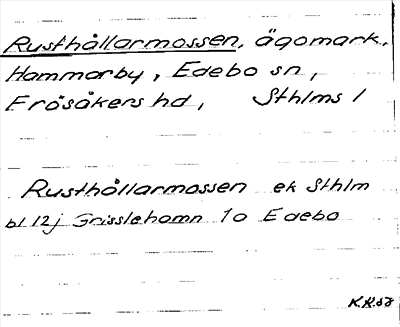 Rusthållarmossen, ägomark,
Hammarby, Edebo sn,
Frösåkers hd, Sthlms l
Rusthållarmossen ek Sthlm
bl 12j Grisslehamn 1a Edebo